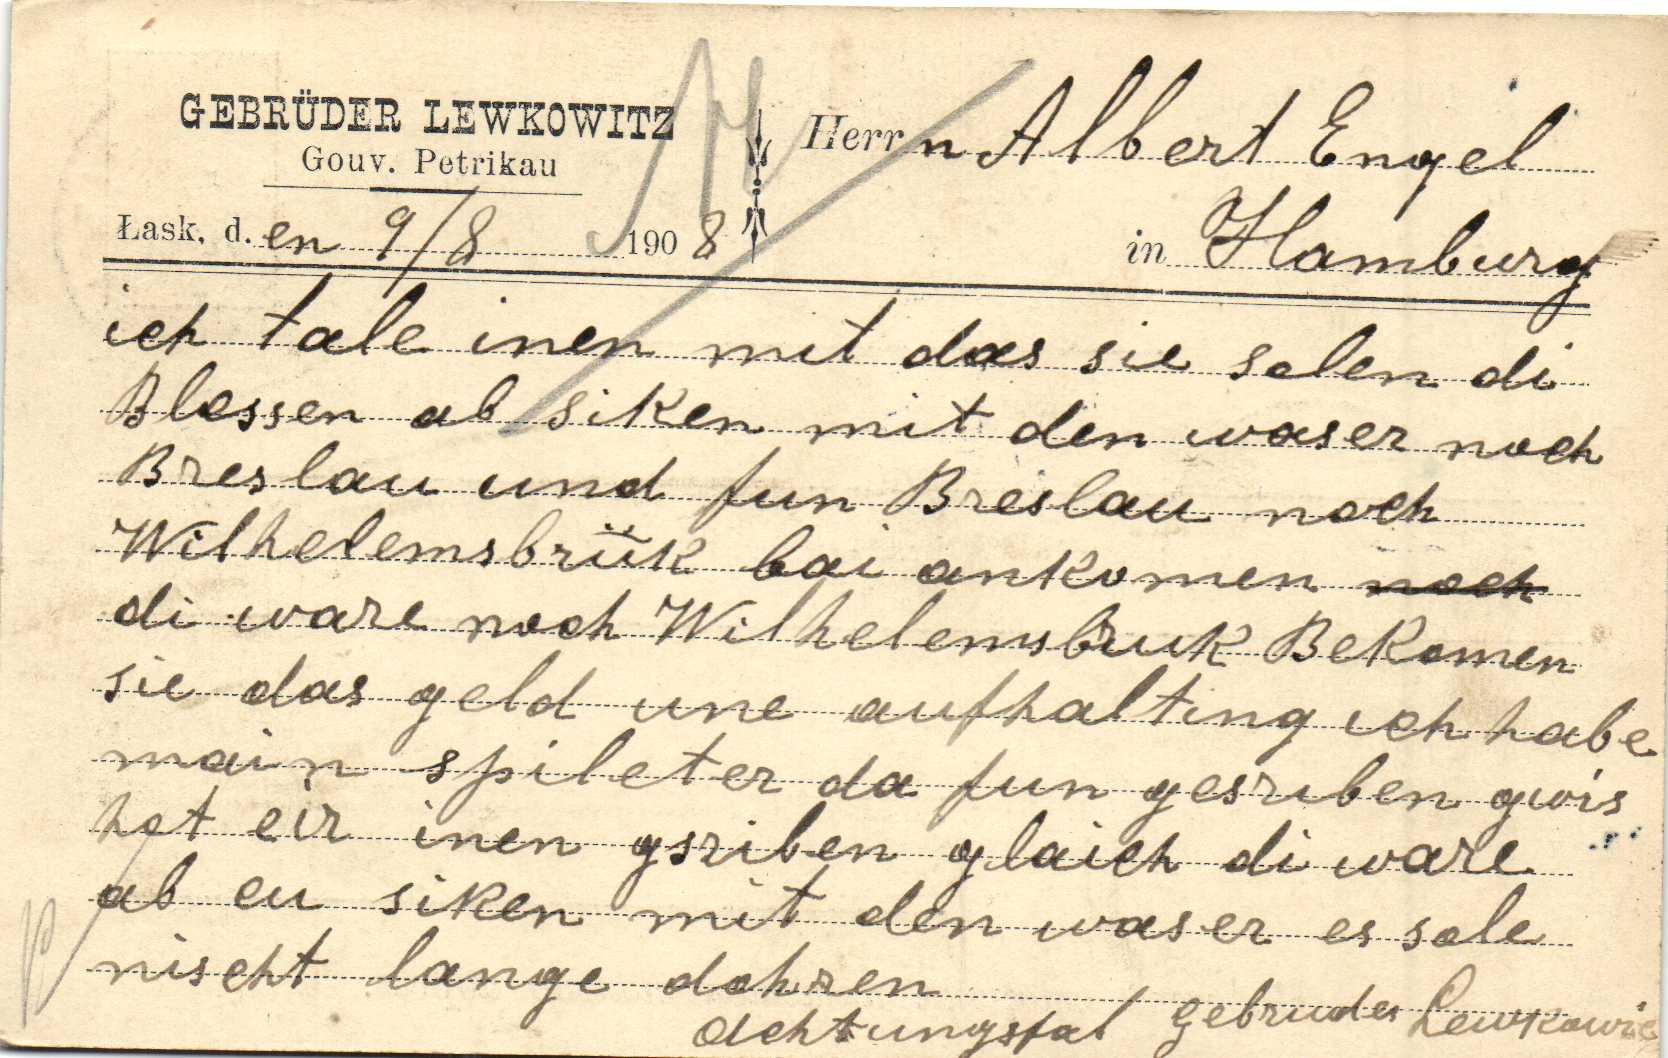 GEBRÜDER LEWKOWITZ
Gouv. Petrikau
Łask, d. en 9/8 1908
Herrn Albert Engel
in Hamburg
ich tale inen mit das sie solen di
Blossen ab siken mit den waser noch
Breslau und fun Breislau noch
Wilhelemsbrük bai ankomen noch
di ware noch Wilhelemsbruk Bekomen
sie das geld une aufhalting ich habe
main spileter da fun gesriben gwis
hot eir inen gsriben glaich di ware
ab eu siken mit den waser es sole
nischt lange dohren
achtungsfal Gebruder Lewkowic